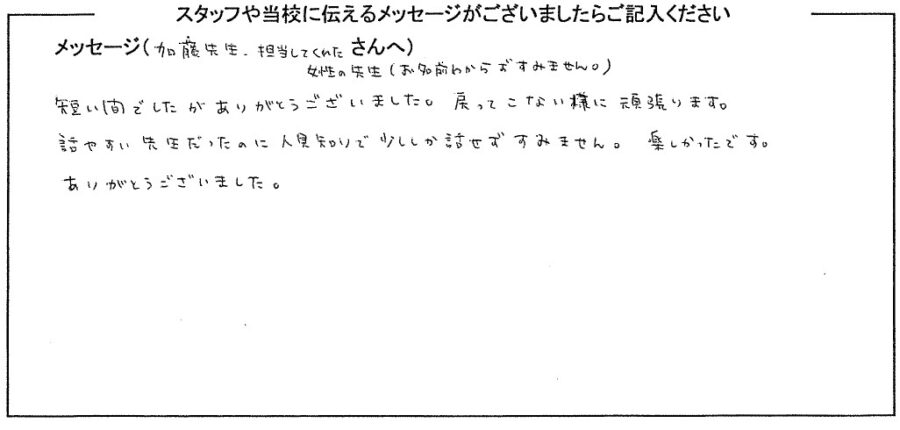 スタッフや当校に伝えるメッセージがございましたらご記入ください
メッセージ(加藤先生.担当してくれた さんへ)
女性の先生(お名前わからずすみません。)
短い間でしたがありがとうございました。戻ってこない様に頑張ります。
話やすい先生だったのに人見知りで少ししか話せずすみません。楽しかったです。
ありがとうございました。